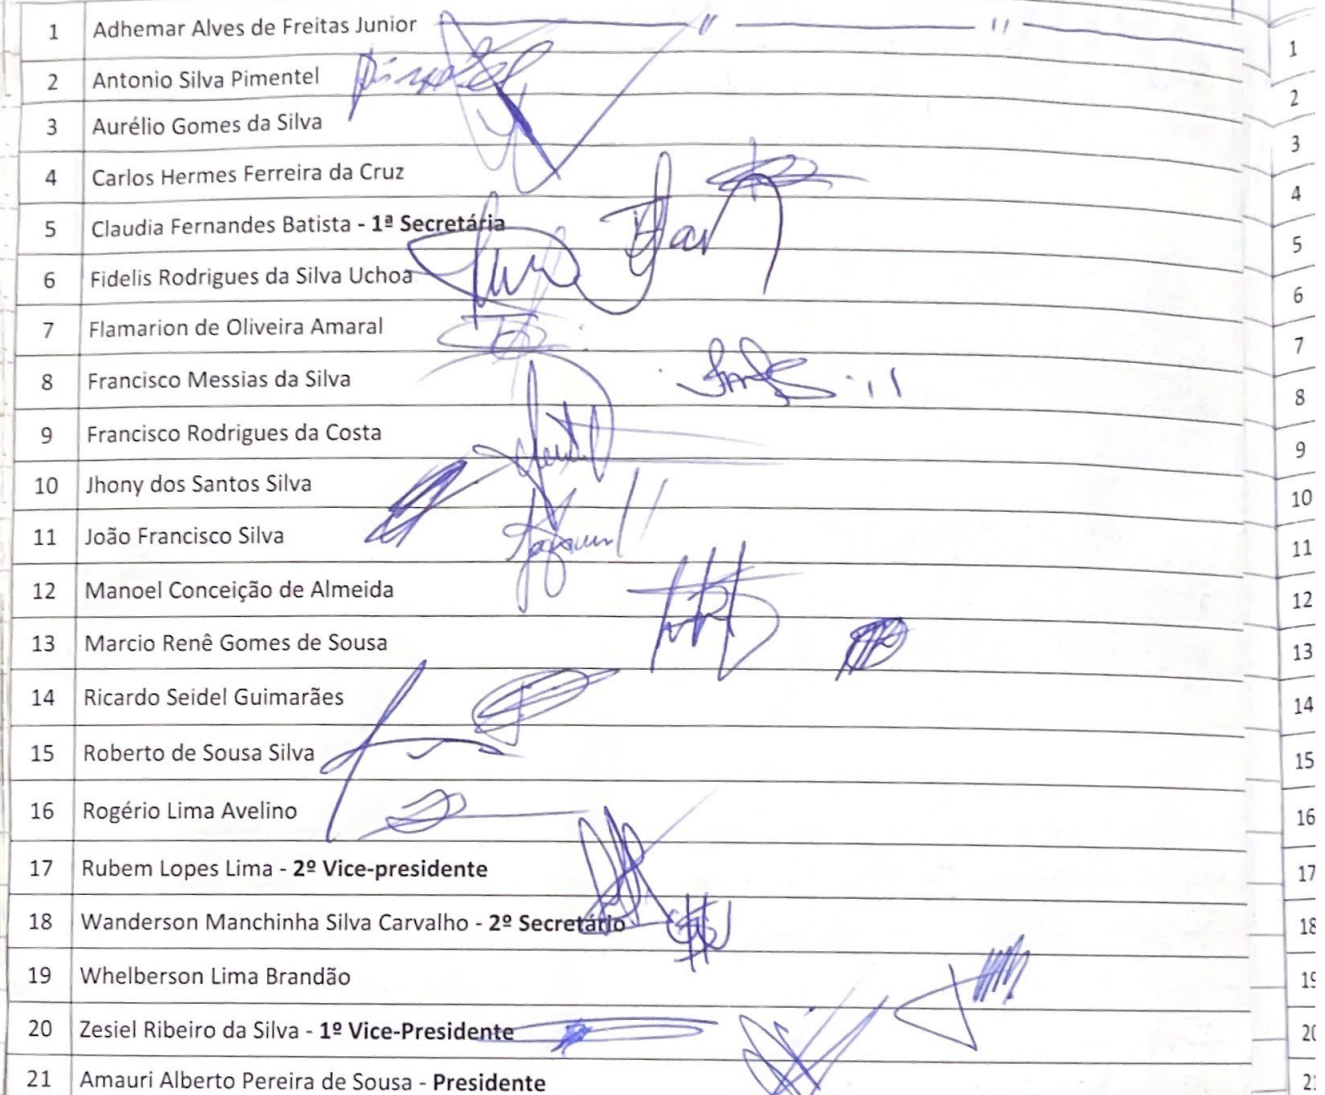 1 Adhemar Alves de Freitas Junior 1
2 Antonio Silva Pimentel 2
3 Aurélio Gomes da Silva 3
4 Carlos Hermes Ferreira da Cruz 4
5 Claudia Fernandes Batista - 1ª Secretária 5
6 Fidelis Rodrigues da Silva Uchoa 6
7 Flamarion de Oliveira Amaral 7
8 Francisco Messias da Silva 8
9 Francisco Rodrigues da Costa 9
10 Jhony dos Santos Silva 10
11 João Francisco Silva 11
12 Manoel Conceição de Almeida 12
13 Marcio Renê Gomes de Sousa 13
14 Ricardo Seidel Guimarães 14
15 Roberto de Sousa Silva 15
16 Rogério Lima Avelino 16
17 Rubem Lopes Lima - 2º Vice-presidente 17
18 Wanderson Manchinha Silva Carvalho - 2º Secretário 18
19 Whelberson Lima Brandão 19
20 Zesiel Ribeiro da Silva - 1º Vice-Presidente 20
21 Amauri Alberto Pereira de Sousa - Presidente 21